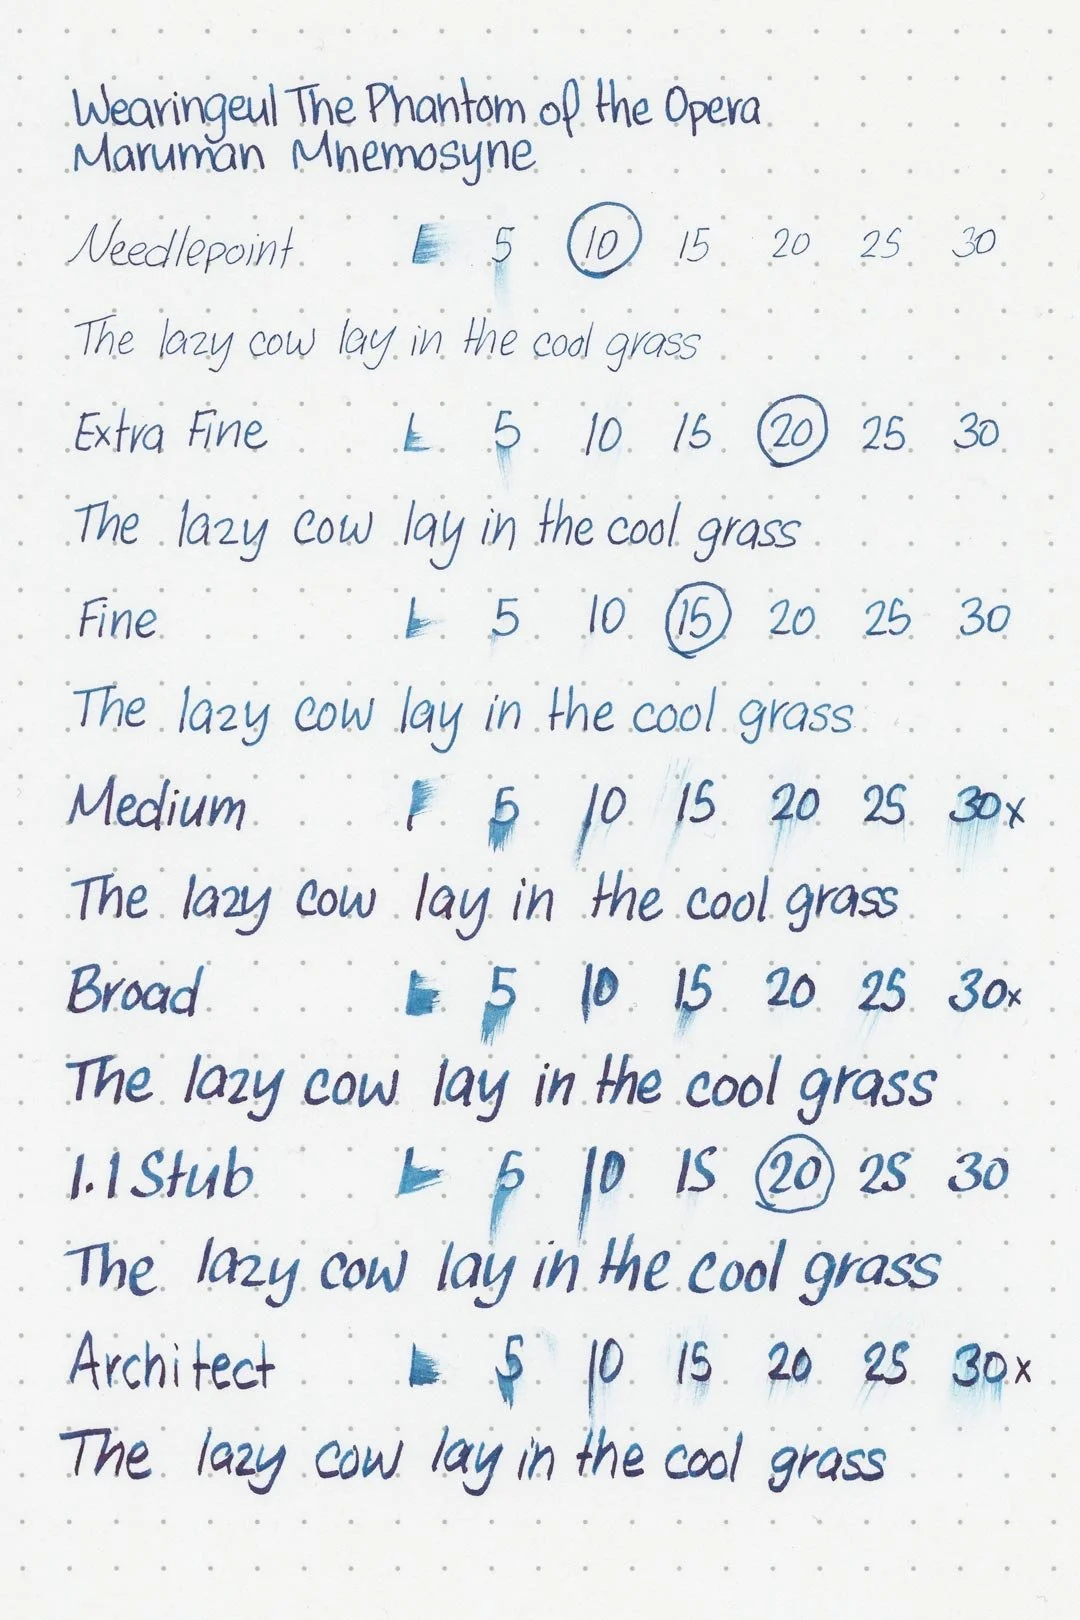 Wearingeul The Phantom of the Opera
Maruman Mnemosyne
Needlepoint 5 10 15 20 25 30
The lazy cow lay in the cool grass
Extra Fine 5 10 15 20 25 30
The lazy cow lay in the cool grass
Fine 5 10 15 20 25 30
The lazy cow lay in the cool grass
Medium 5 10 15 20 25 30x
The lazy cow lay in the cool grass
Broad 5 10 15 20 25 30x
The lazy cow lay in the cool grass
1.1 Stub 5 10 15 20 25 30
The lazy cow lay in the cool grass
Architect 5 10 15 20 25 30x
The lazy cow lay in the cool grass